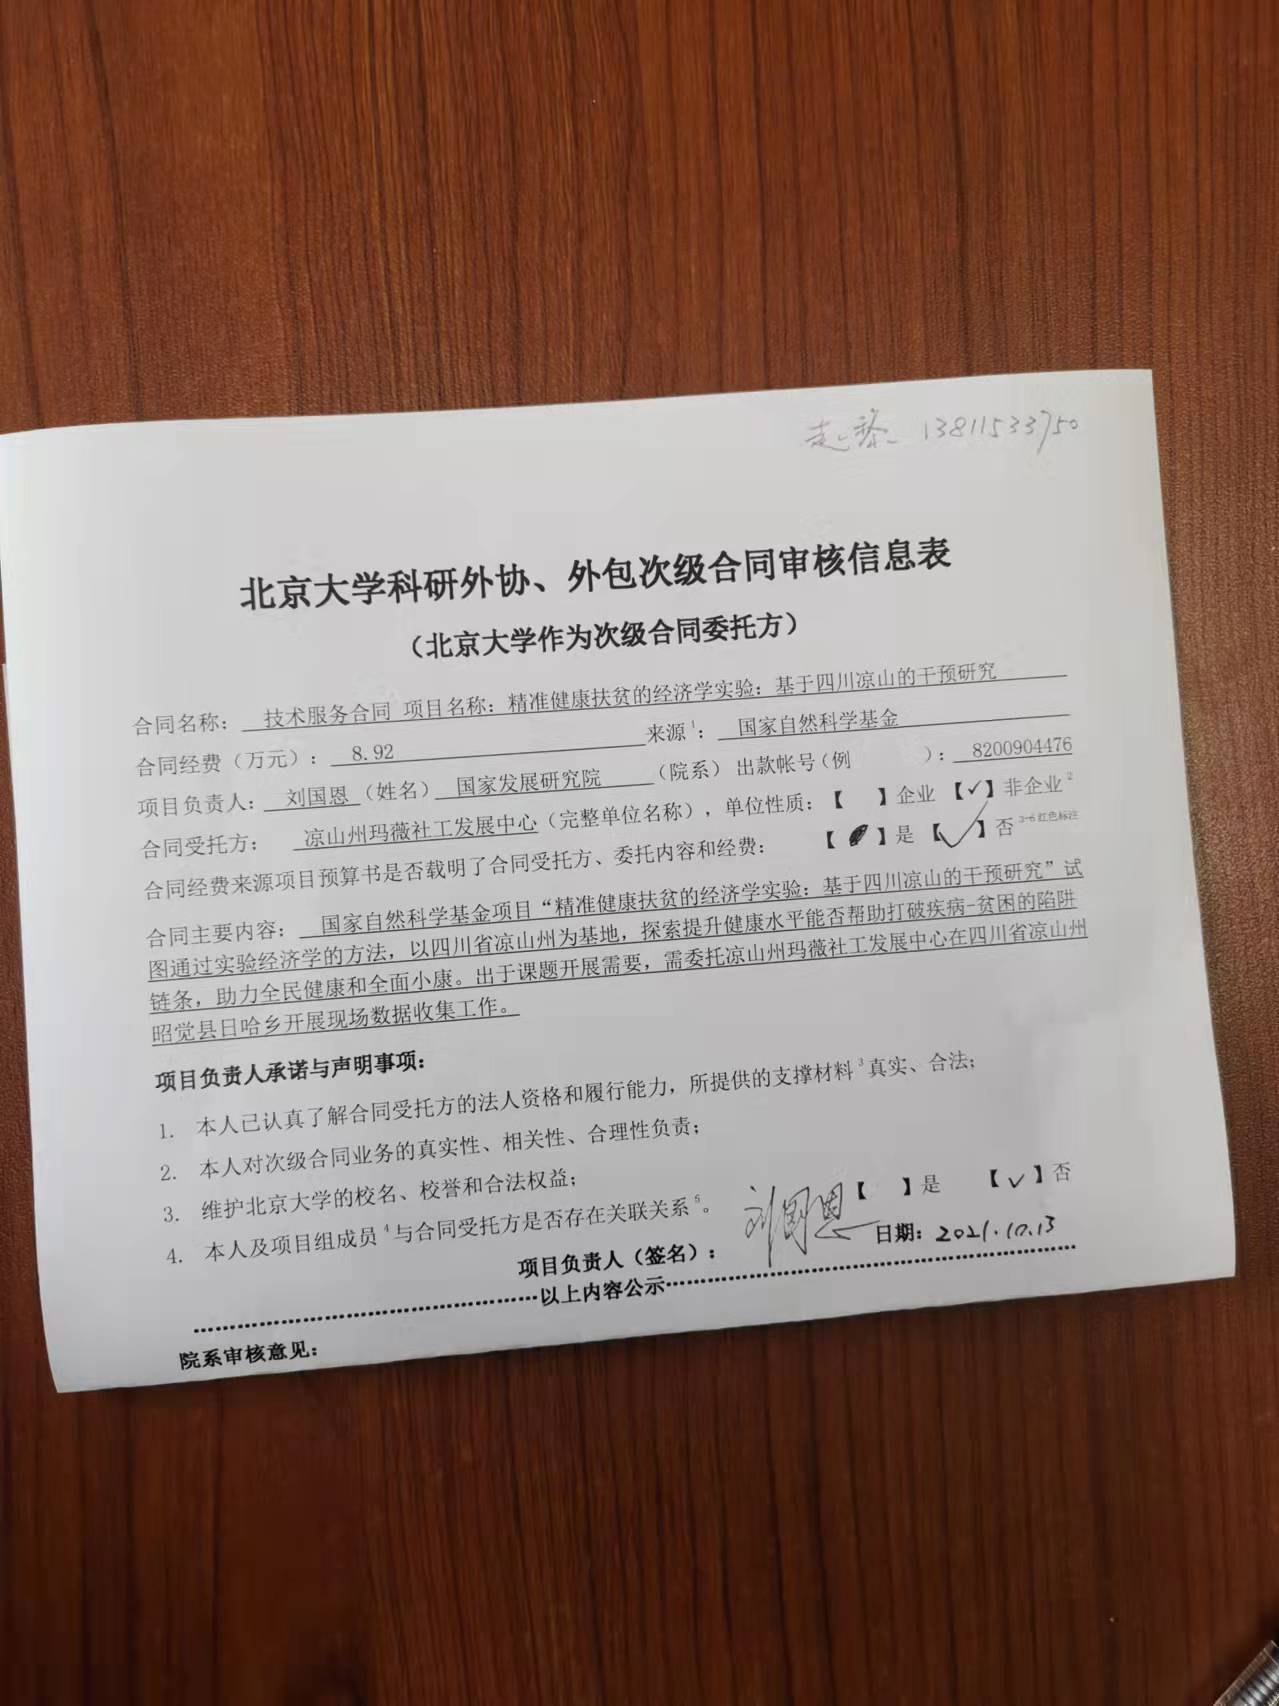 赵黎 13811533750
北京大学科研外协、外包次级合同审核信息表
（北京大学作为次级合同委托方）
合同名称： 技术服务合同 项目名称：精准健康扶贫的经济学实验：基于四川凉山的干预研究
合同经费（万元）： 8.92 来源1： 国家自然科学基金
项目负责人： 刘国恩 （姓名） 国家发展研究院 （院系） 出款帐号（例 ）： 8200904476
合同受托方： 凉山州玛薇社工发展中心（完整单位名称），单位性质：【 】企业 【✓】非企业2
合同经费来源项目预算书是否载明了合同受托方、委托内容和经费： 【 】是 【✓】否 3-6 红色标注
合同主要内容： 国家自然科学基金项目“精准健康扶贫的经济学实验：基于四川凉山的干预研究”试
图通过实验经济学的方法，以四川省凉山州为基地，探索提升健康水平能否帮助打破疾病-贫困的陷阱
链条，助力全民健康和全面小康。出于课题开展需要，需委托凉山州玛薇社工发展中心在四川省凉山州
昭觉县日哈乡开展现场数据收集工作。
项目负责人承诺与声明事项：
1. 本人已认真了解合同受托方的法人资格和履行能力，所提供的支撑材料3真实、合法；
2. 本人对次级合同业务的真实性、相关性、合理性负责；
3. 维护北京大学的校名、校誉和合法权益；
4. 本人及项目组成员4与合同受托方是否存在关联关系5。 【 】是 【✓】否
项目负责人（签名）： 刘国恩 日期：2021.10.13
以上内容公示
院系审核意见：